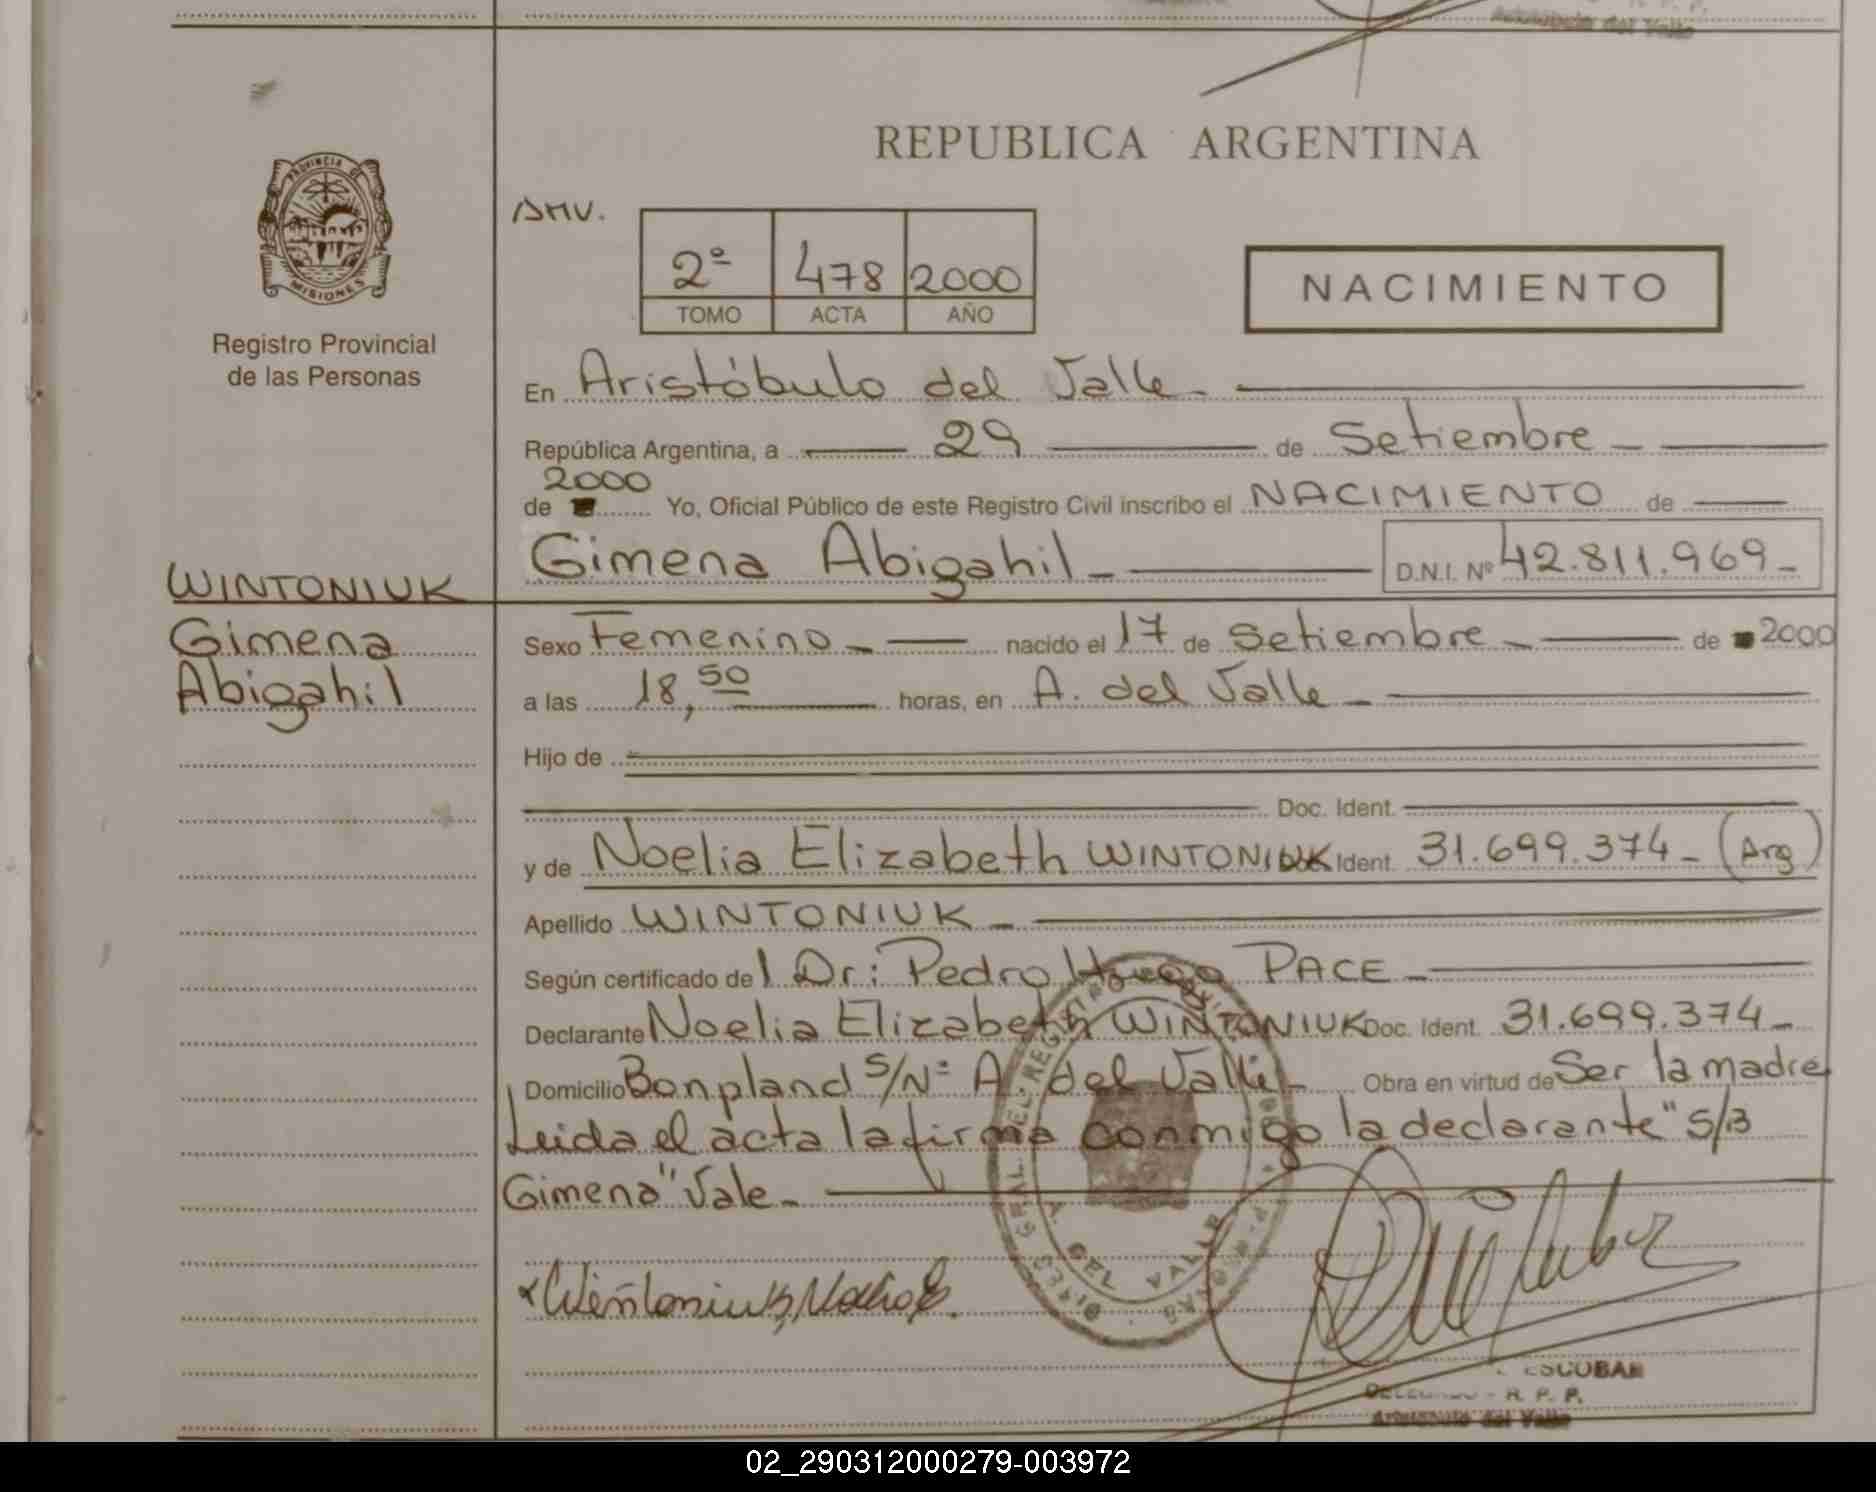 Aristóbulo del Valle
REPUBLICA ARGENTINA
PROVINCIA DE
MISIONES
Registro Provincial
de las Personas
2º 478 2000
TOMO ACTA AÑO
NACIMIENTO
En Aristóbulo del Valle
República Argentina, a 29 de Setiembre
2000
de Yo, Oficial Público de este Registro Civil inscribo el NACIMIENTO de
Gimena Abigahil D.N.I. Nº 42.811.969
WINTONIUK
Gimena
Abigahil
Sexo Femenino nacido el 17 de Setiembre de 2000
a las 18,50 horas, en A. del Valle
Hijo de
Doc. Ident.
y de Noelia Elizabeth WINTONIUK Ident. 31.699.374 (Arg)
Apellido WINTONIUK
Según certificado de l Dr: Pedro Hugo PACE
Declarante Noelia Elizabeth WINTONIUK Doc. Ident. 31.699.374
Domicilio Bonpland S/Nº A. del Valle Obra en virtud de Ser la madre
Leida el acta la firma conmigo la declarante "S/B
Gimena" Vale
A. DEL VALLE
ESCOBAR
R. P. P.
Aristobulo del Valle
02_290312000279-003972